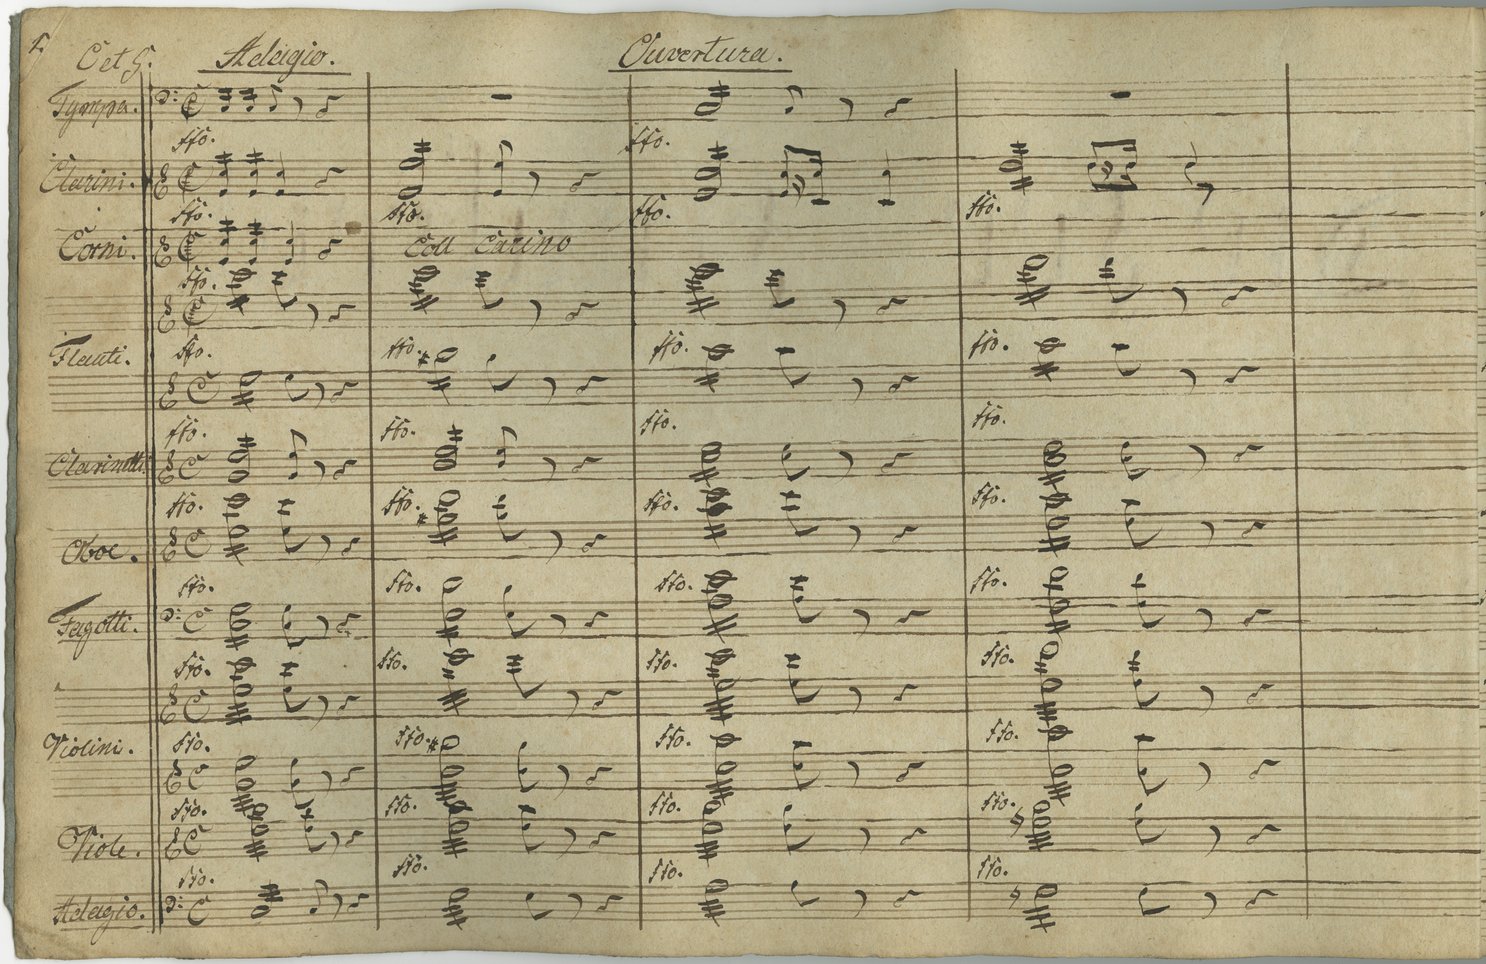 1.
C et G. Adagio. Ouvertura.
Tympa.
ffo. ffo.
Clarini.
ffo. ffo. ffo. ffo.
Corni. Coll Carino
ffo.
Flauti. ffo. ffo. ffo. ffo.
ffo. ffo. ffo. ffo.
Clarinetti.
ffo. ffo. ffo. ffo.
Oboe.
ffo. ffo. ffo. ffo.
Fagotti.
ffo. ffo. ffo. ffo.
Violini. ffo. ffo. ffo. ffo.
ffo. ffo. ffo. ffo.
Viole.
ffo. ffo. ffo. ffo.
Adagio.